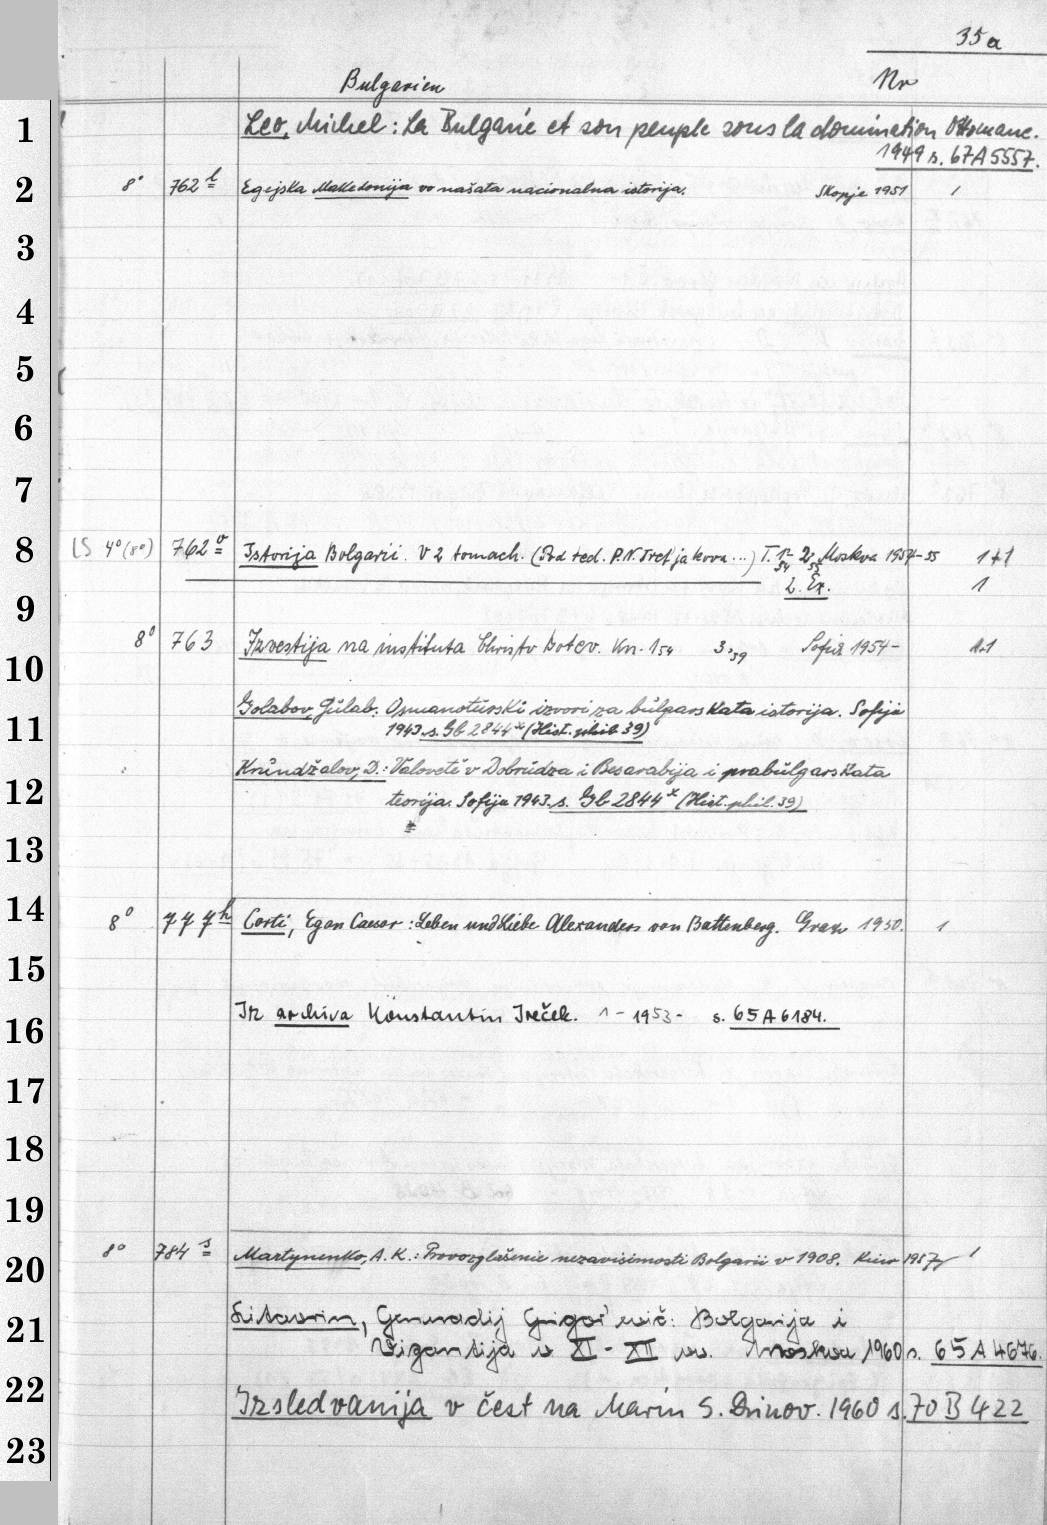 35a
Bulgarien Nr
1 Leo, Michel: La Bulgarie et son peuple sous la domination Ottomane.
1949 s. 67A5557.
2 8° 762 l Egejska Makedonija vo našata nacionalna istorija. Skopje 1951 1
3
4
5
6
7
8 LS 4°(8°) 762 o Istorija Bolgarii. V 2 tomach. (Pod red. P.N. Tret'jakova ...) T. 1- 2, Moskva 1954-55 1+1
54 55
2. Ex. 1
9
8° 763 Izvestija na instituta Christo Botev. Kn. 1 54 3. 59 Sofija 1954-
10
Golabov, Gŭlab: Osmanoturski izvori za bŭlgarskata istorija. Sofija
11 1943. s. Gb 2844 x (Hist. phil. 39)
Krŭndžalov, D.: Valovetě v Dobrudža i Besarabija i prabŭlgarskata
12 teorija. Sofija 1943. s. Gb 2844 x (Hist. phil. 39)
13
14 8° 777 h Corti, Egon Caesar: Leben und Liebe Alexanders von Battenberg. Graz 1950. 1
15
16 Iz archiva Konstantin Ireček. 1- 1953- s. 65A6184.
17
18
19
20 8° 784 s Martynenko, A. K.: Provozglašenie nezavisimosti Bolgarii v 1908. Kiev 1957 1
21 Litavrin, Gennadij Grigor'evič: Bolgarija i
Vizantija v XI-XII vv. Moskva 1960 s. 65A4676.
22 Izsledvanija v čest na Marin S. Drinov. 1960 s. 70B422
23